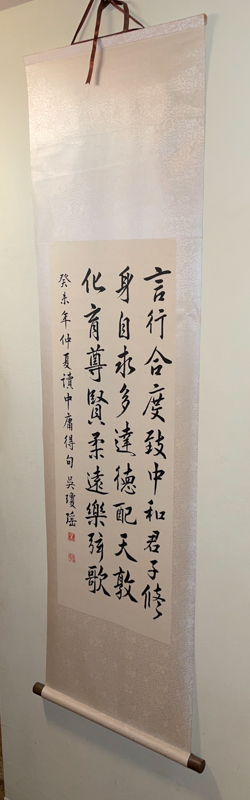 言行合度致中和君子脩
身自求多達德配天敦
化育尊賢柔遠樂弦歌
癸未年仲夏讀中庸得句 吳瓊瑶